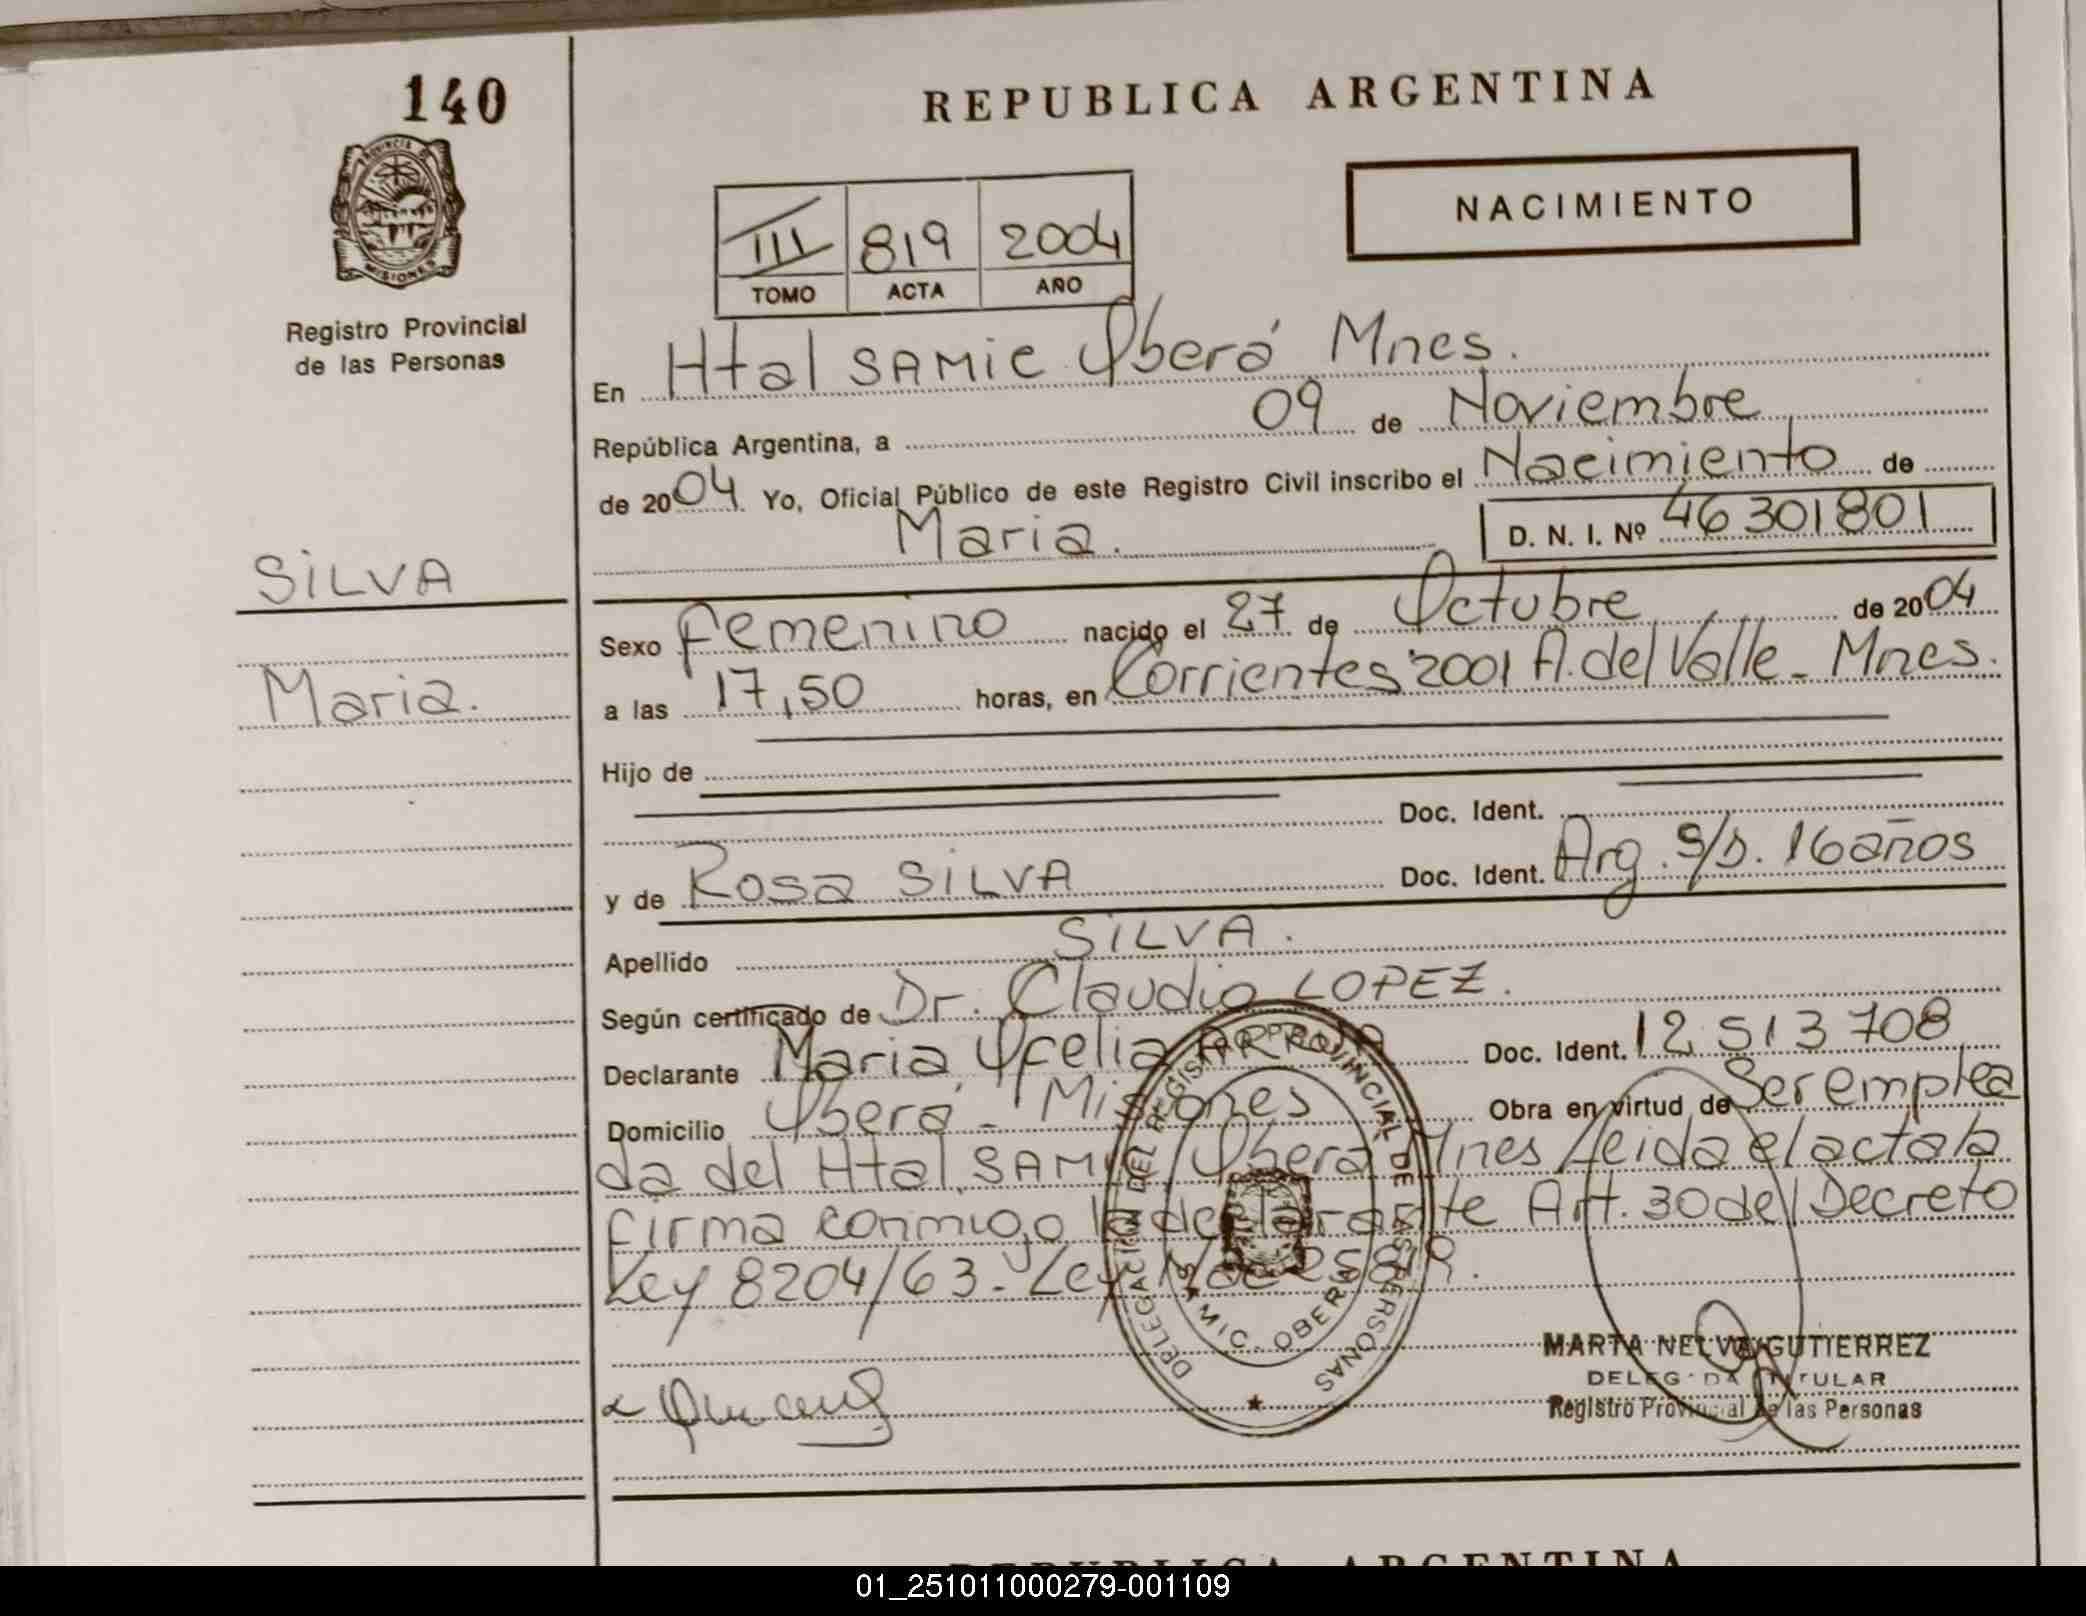 140
REPUBLICA ARGENTINA
PROVINCIA DE
MISIONES
NACIMIENTO
III 819 2004
TOMO ACTA AÑO
Registro Provincial
de las Personas
En Htal SAMIC Oberá Mnes.
República Argentina, a 09 de Noviembre
de 2004 Yo, Oficial Público de este Registro Civil inscribo el Nacimiento de
Maria. D. N. I. Nº 46 301 801
SILVA
Maria.
Sexo Femenino nacido el 27 de Octubre de 2004
a las 17,50 horas, en Corrientes 2001 A. del Valle - Mnes.
Hijo de
Doc. Ident.
y de Rosa SILVA Doc. Ident. Arg. S/D. 16 años
Apellido SILVA.
Según certificado de Dr. Claudio LOPEZ.
Declarante Maria Ofelia Doc. Ident. 12 513 708
Domicilio Oberá - Misiones Obra en virtud de Ser emplea
da del Htal. SAMIC Oberá Mnes Leida el acta la
firma conmigo la declarante Art. 30 del Decreto
Ley 8204/63. Ley
DELEGACION DEL REGISTRO PROVINCIAL DE LAS PERSONAS
SAMIC. OBERA
MARTA NELVA GUTIERREZ
DELEGADA TITULAR
Registro Provincial de las Personas
REPUBLICA ARGENTINA
01_251011000279-001109